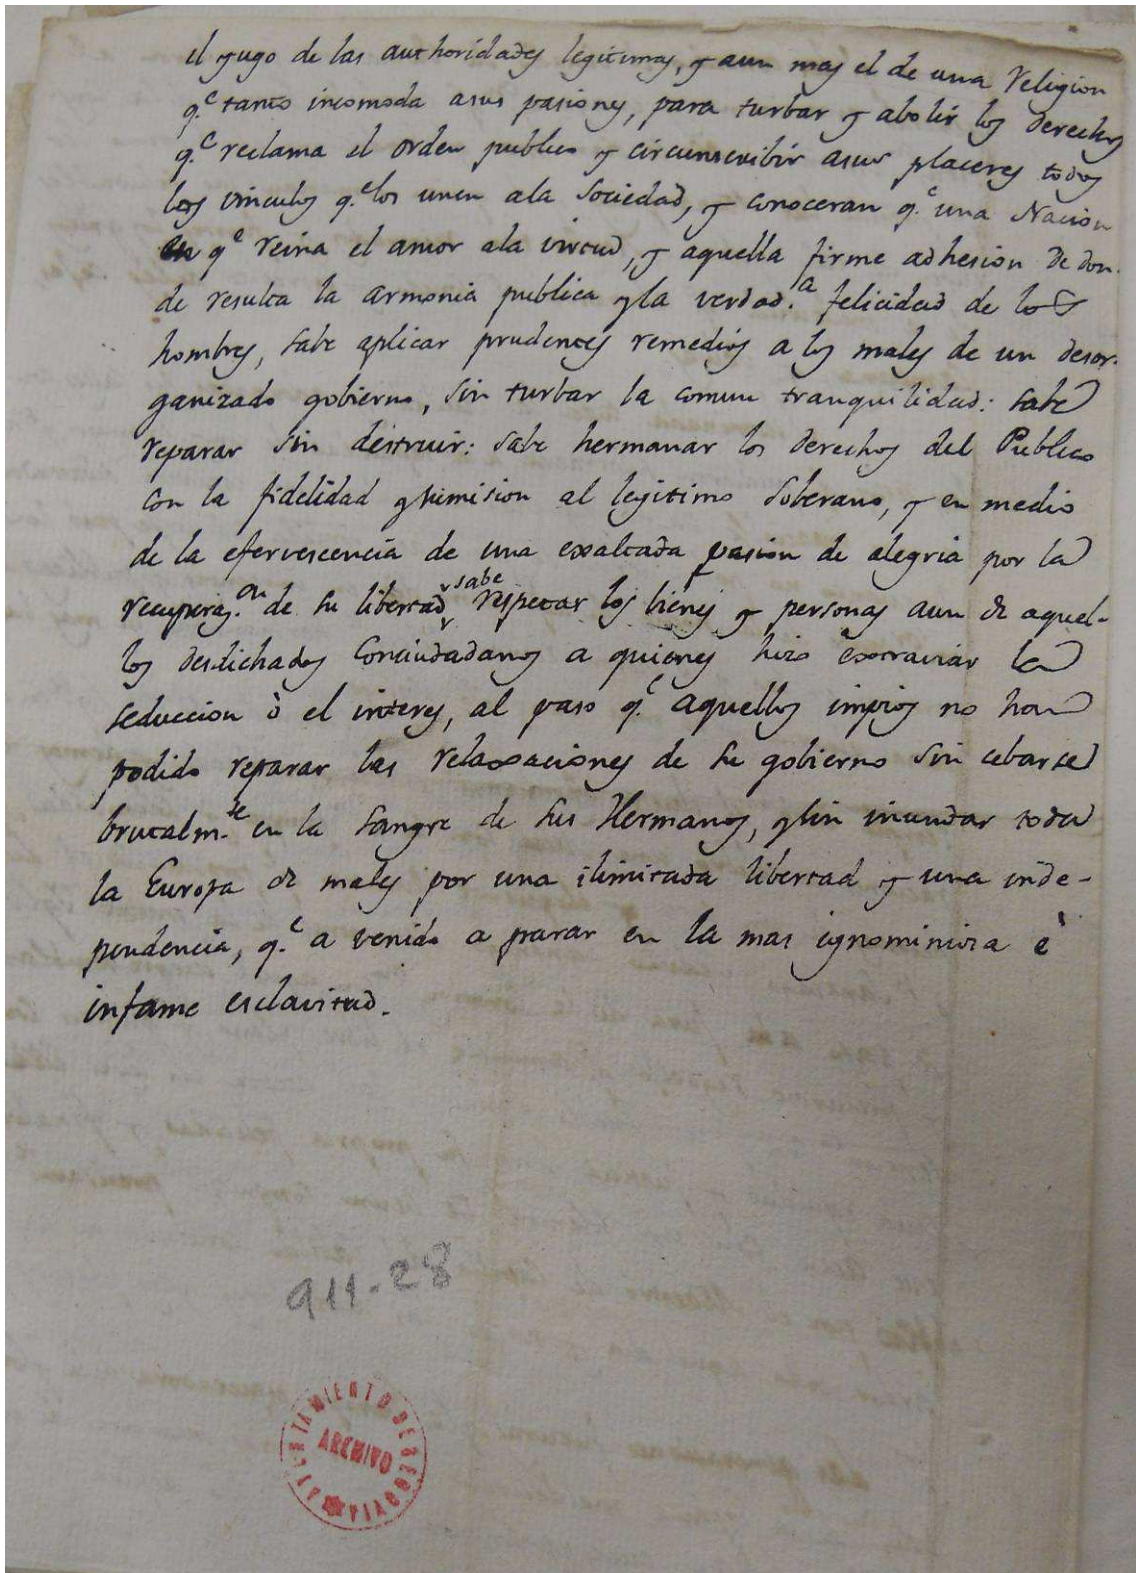 el yugo de las authoridades legitimas, y aun mas el de una Religion
q.e tanto incomoda asus pasiones, para turbar y abolir los derechos
q.e reclama el orden publico y circunscribir asus placeres todos
los vinculos q.e los unen ala Sociedad, y conoceran q.e una Nacion
en q.e reina el amor ala virtud, y aquella firme adhesion de don-
de resulta la armonia publica y la verdad.a felicidad de los
hombres, sabe aplicar prudentes remedios a los males de un desor-
ganizado gobierno, sin turbar la comun tranquilidad: sabe
reparar sin destruir: sabe hermanar los derechos del Publico
con la fidelidad y sumision al legitimo Soberano, y en medio
de la efervescencia de una exaltada pasion de alegria por la
recuperaz.on de su libertad, sabe respetar los bienes y personas aun de aquel-
los desdichados Conciudadanos a quienes hizo extraviar la
seduccion ò el interes, al paso q.e aquellos impios no han
podido reparar las relaxaciones de su gobierno sin cebarse
brutalm.te en la sangre de sus Hermanos, y sin inundar toda
la Europa de males por una ilimitada libertad y una inde-
pendencia, q.e a venido a parar en la mas ignominiosa è
infame esclavitud.
911-28
AYUNTAMIENTO DE SEGOVIA
ARCHIVO